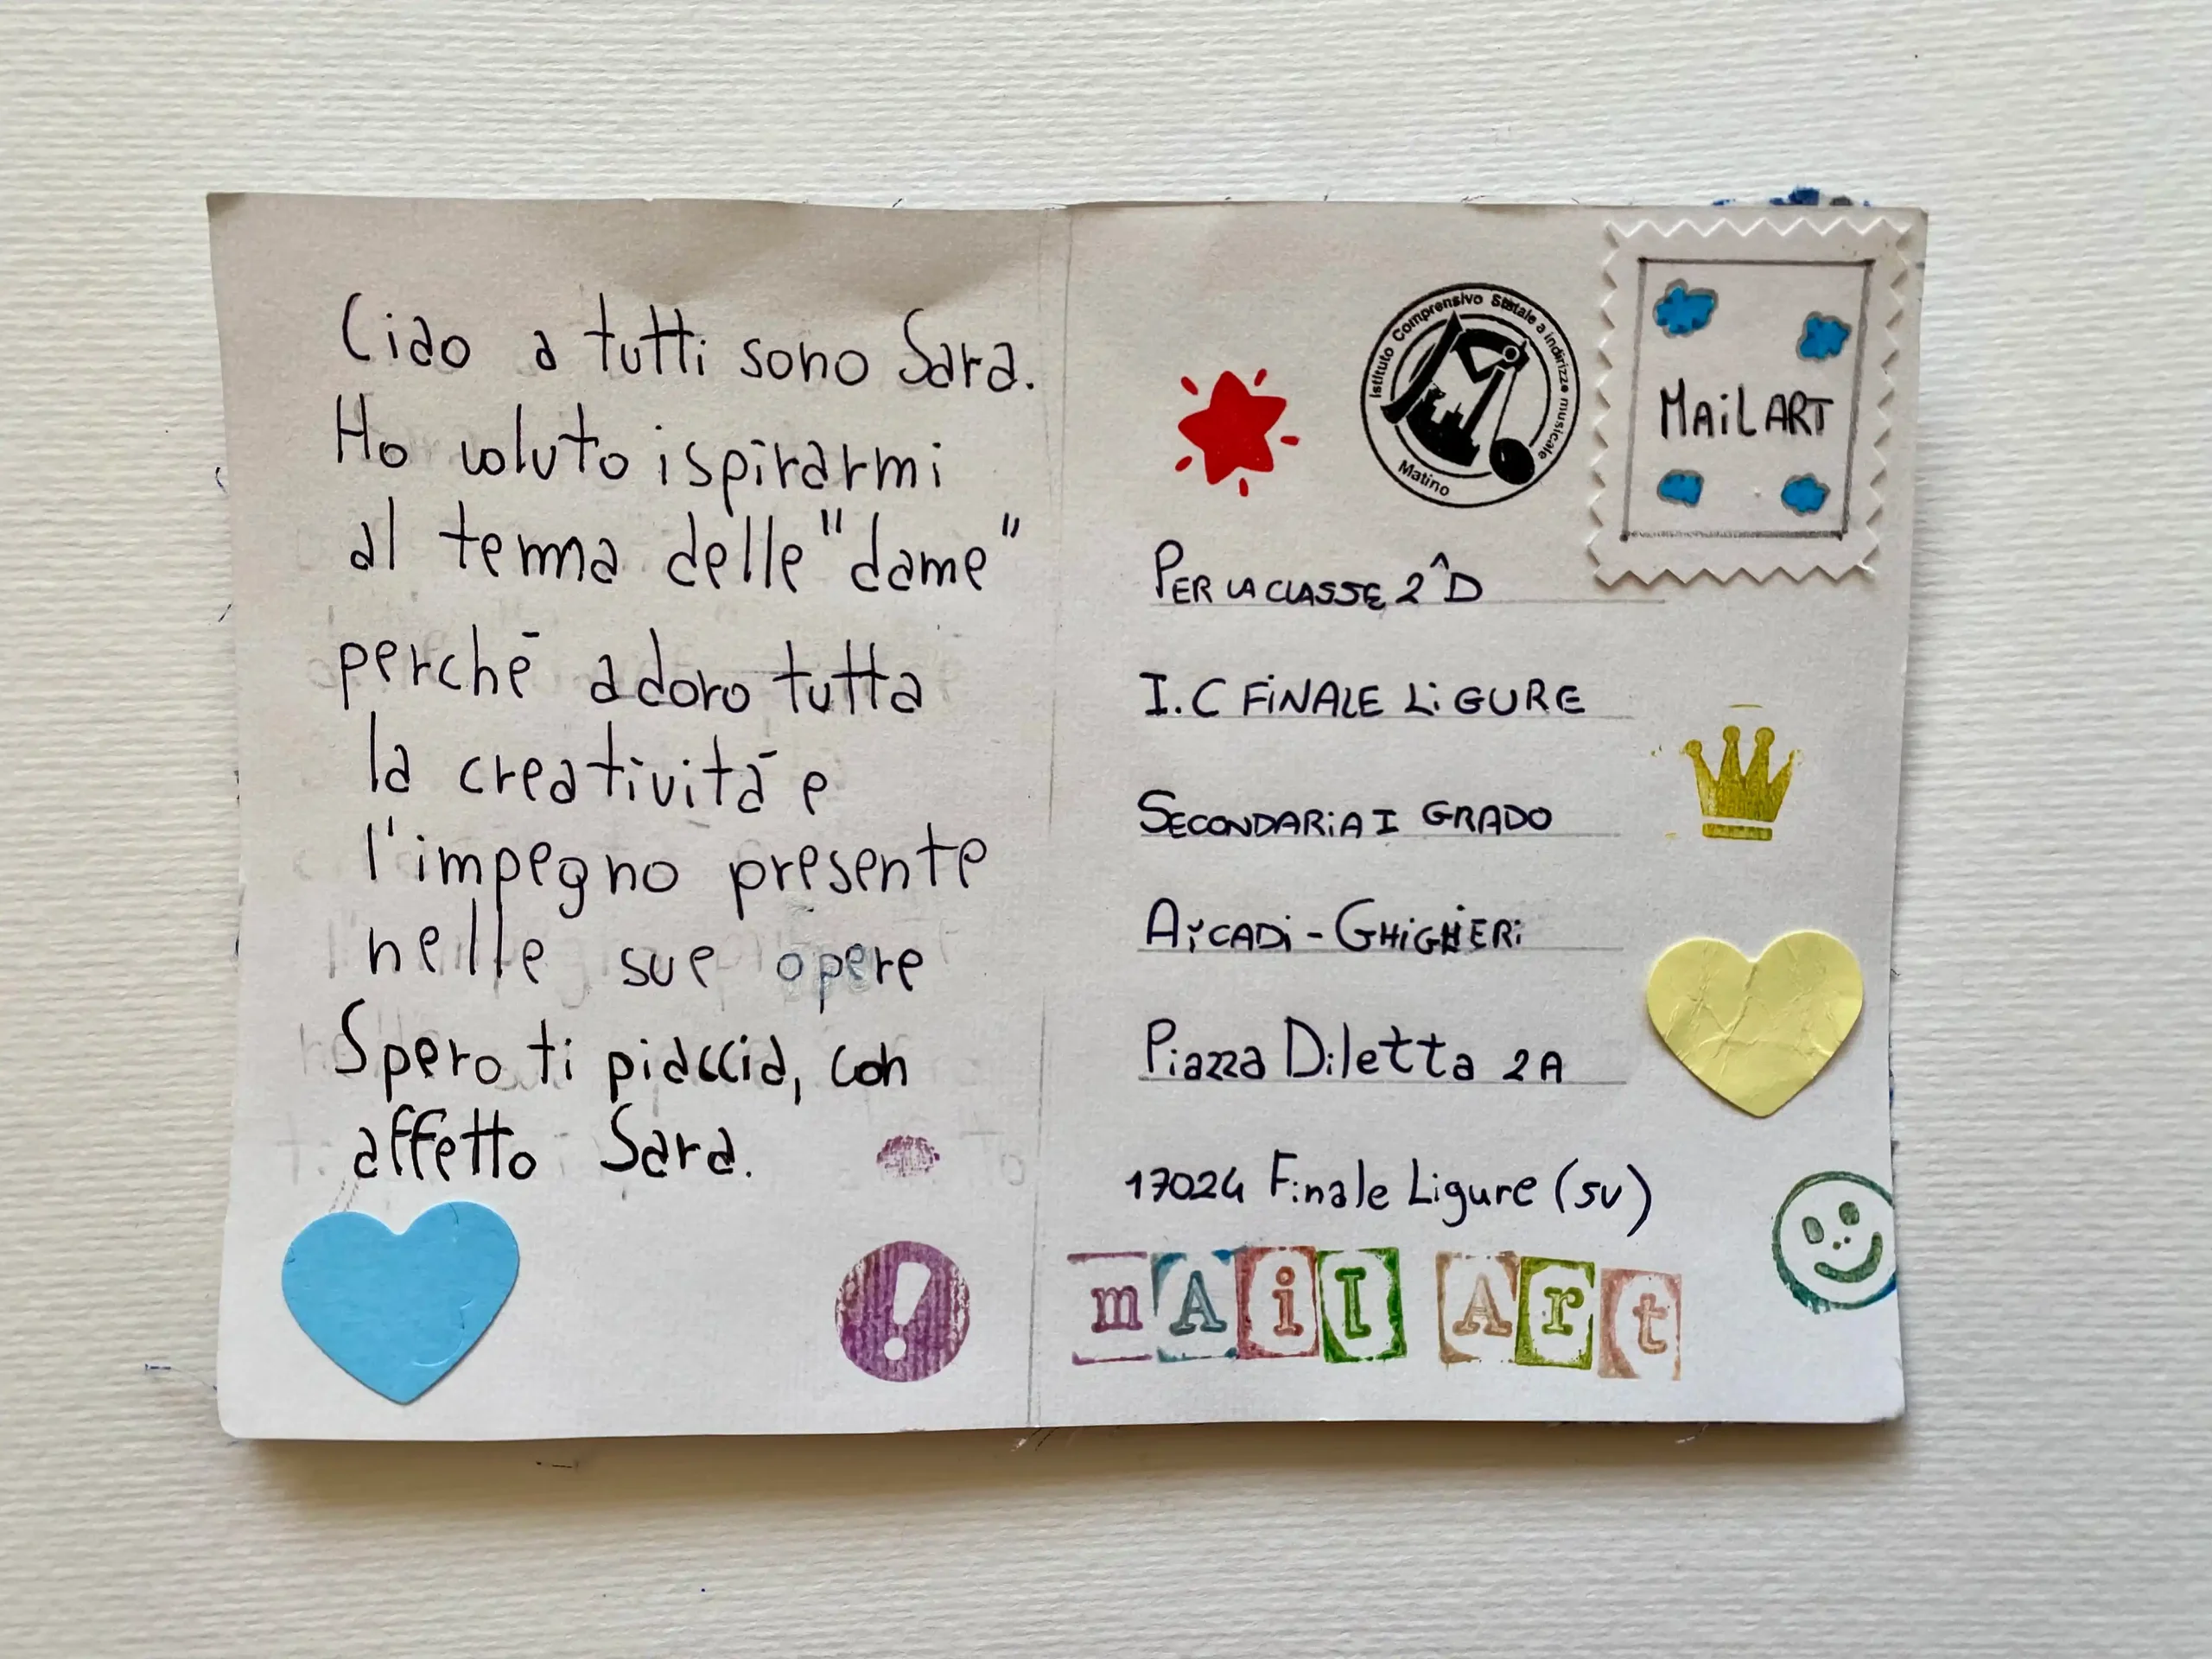 Ciao a tutti sono Sara.
Ho voluto ispirarmi
al tema delle "dame"
perchē adoro tutta
la creativitā e
l'impegno presente
nelle sue opere
Spero ti piaccia, con
affetto Sara.
Istituto Comprensivo Statale a indirizzo musicale
Matino
MAiL ART
PER LA CLASSE 2^D
I.C FiNALE LiGURE
SECONDARiA I GRADO
AYCADi - GHiGHERi
Piazza Diletta 2A
17024 Finale Ligure (SV)
mAil Art